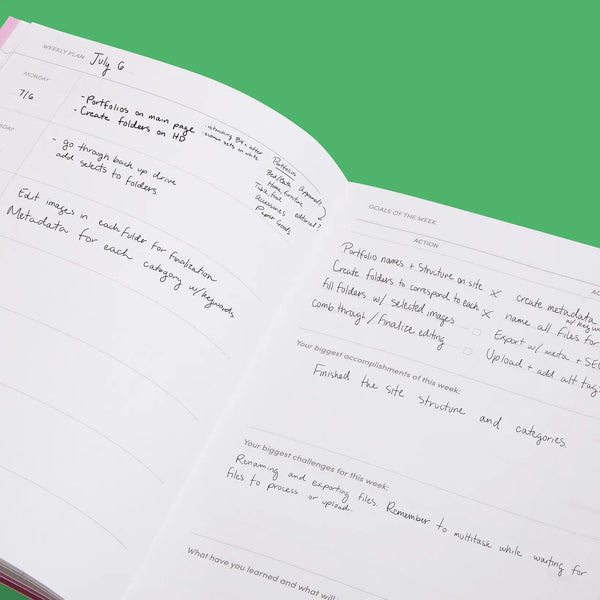 WEEKLY PLAN July 6
MONDAY
7/6
- Portfolios on main page
- Create folders on HD
Portfolio
Bed/Bath Apparel
Home, Furniture
Table, Food
Accessories editorial?
Paper Goods
- go through back up drive
add selects to folders
Edit images in each folder for finalization
Metadata for each category w/ keywords
GOALS OF THE WEEK
ACTION
Portfolio names + Structure on site X
Create folders to correspond to each X
fill folders w/ selected images
comb through / Finalize editing
create metadata
w/
name all files for
Export w/ meta + SEO
Upload + add alt
Your biggest accomplishments of this week:
Finished the site structure and categories.
Your biggest challenges for this week:
Renaming and exporting files. Remember to multitask while waiting for
files to process or upload.
What have you learned and what will